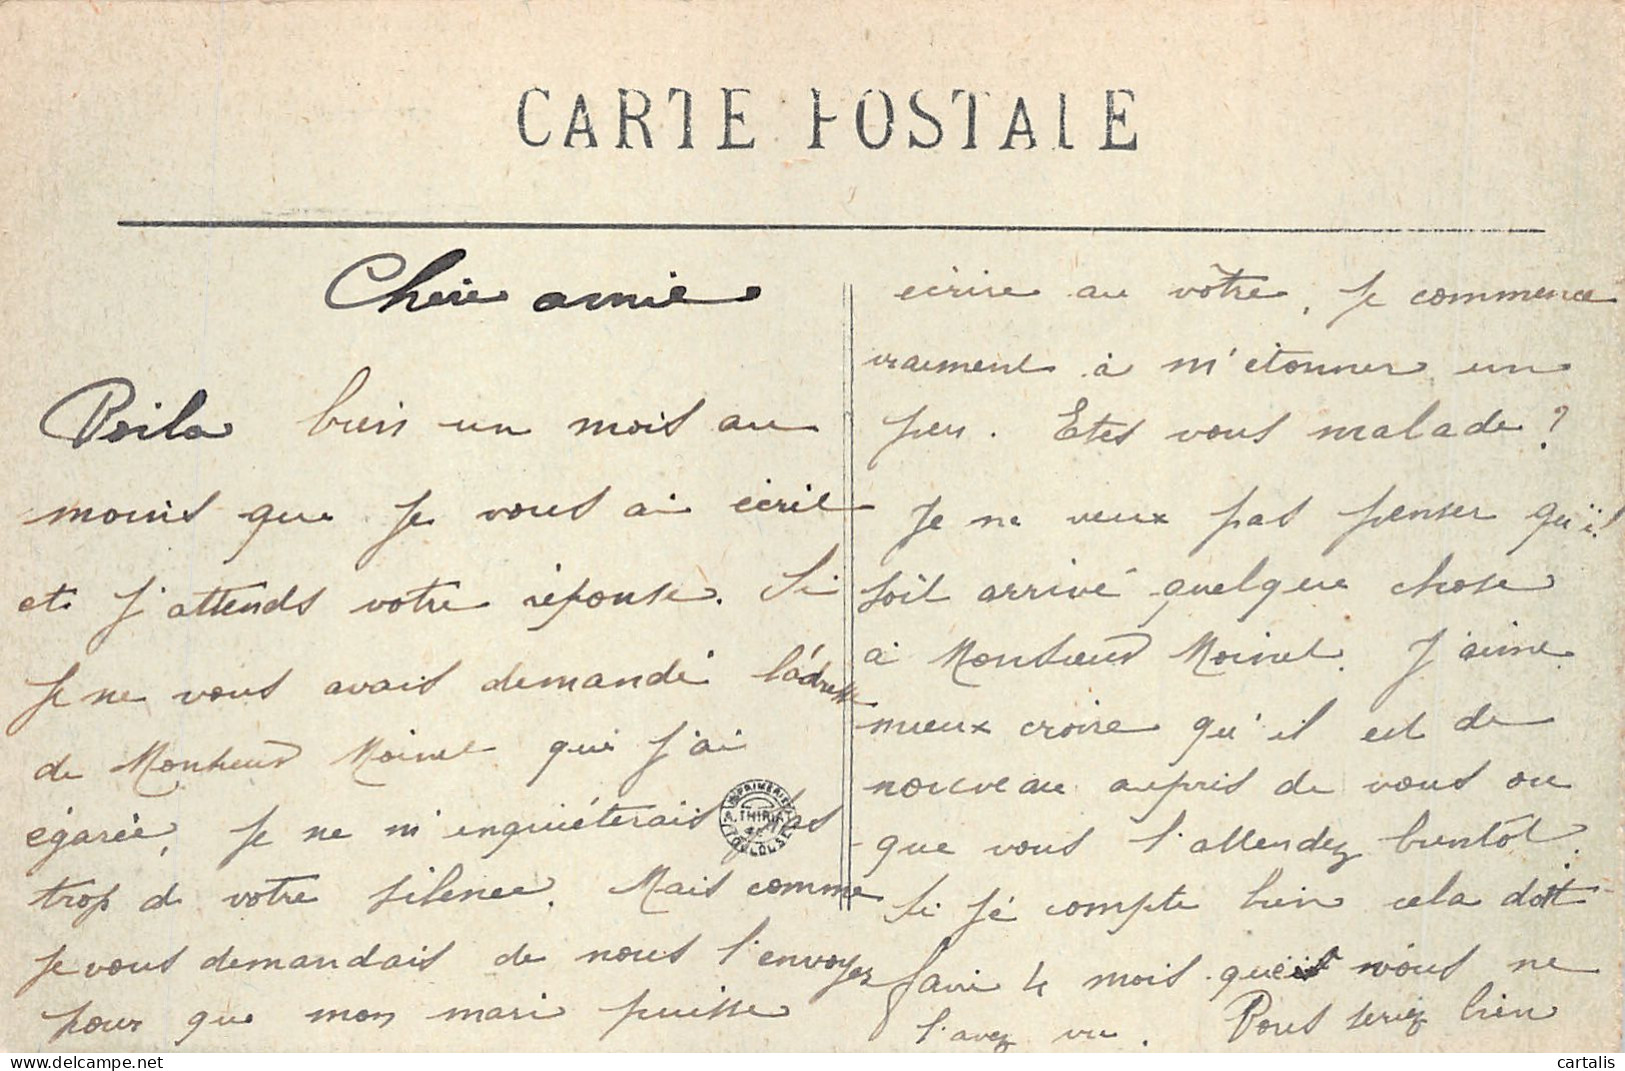 CARTE POSTALE
Chère amie
Voila bien un mois au
moins que je vous ai écrit
et j'attends votre réponse. Si
je ne vous avais demandé l'adresse
de Monsieur Moinet que j'ai
égarée, je ne m'inquiéterais pas
trop de votre silence. Mais comme
je vous demandais de nous l'envoyer
pour que mon mari puisse
IMPRIMERIE A. THIRIAT TOULOUSE
écrire au vôtre, je commence
vraiment à m'étonner un
peu. Etes vous malade ?
Je ne veux pas penser qu'il
soit arrivé quelque chose
à Monsieur Moinet. J'aime
mieux croire qu'il est de
nouveau auprès de vous ou
que vous l'attendez bientôt.
Si je compte bien cela doit
faire 4 mois que vous ne
l'avez vu. Vous seriez bien
cartalis